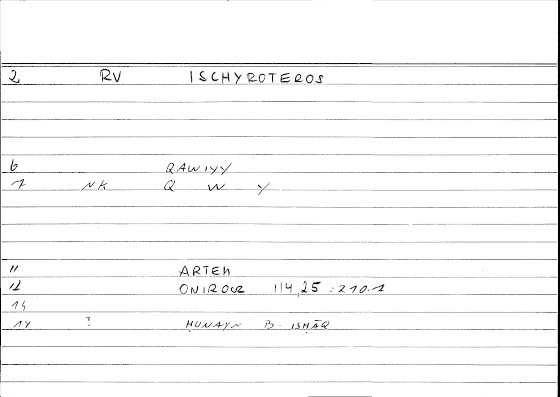 2 RV ISCHYROTEROS
6 QAWIYY
7 NK Q W Y
11 ARTEM
12 ONIROCR 114,25 : 210.1
14
17 ? ḤUNAYN B. ISḤĀQ